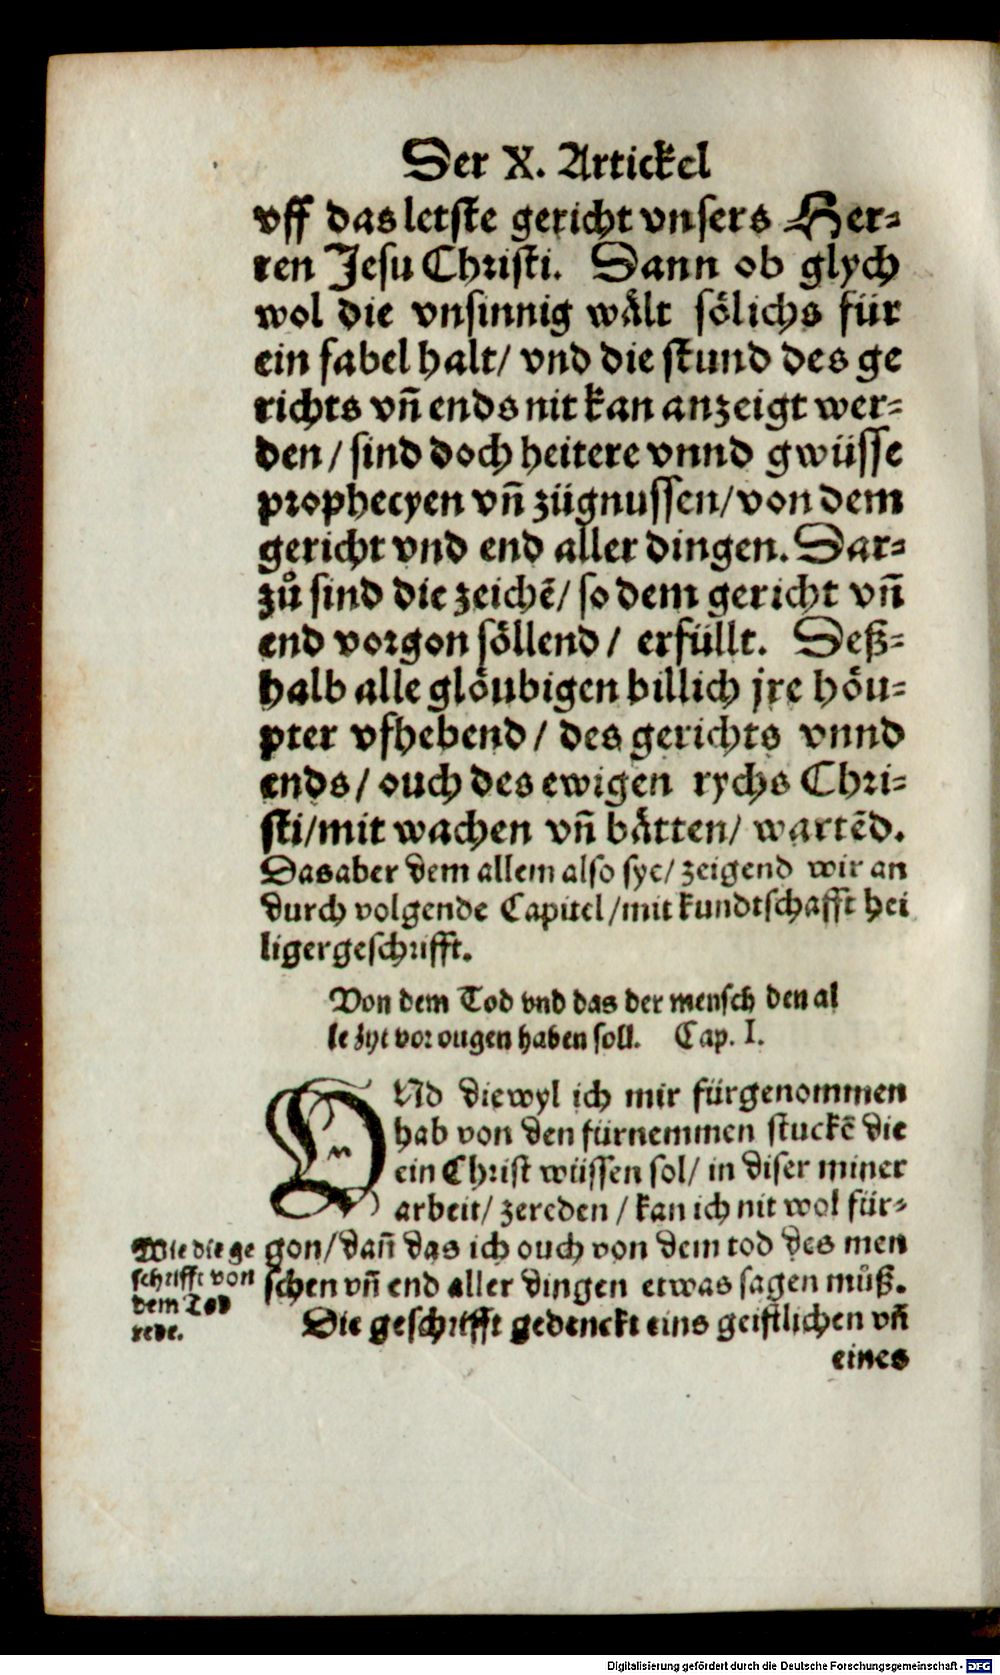 Der X. Artickel
vff das letste gericht vnsers Her=
ren Jesu Christi. Dann ob glych
wol die vnsinnig wält sölichs für
ein fabel halt/ vnd die stund des ge
richts vñ ends nit kan anzeigt wer=
den/ sind doch heitere vnnd gwüsse
prophecyen vñ zügnussen/ von dem
gericht vnd end aller dingen. Dar=
zů sind die zeichẽ/ so dem gericht vñ
end vorgon söllend/ erfüllt. Deß=
halb alle glöubigen billich jre höu=
pter vfhebend/ des gerichts vnnd
ends/ ouch des ewigen rychs Chri=
sti/mit wachen vñ bätten/ wartẽd.
Das aber dem allem also sye/ zeigend wir an
durch volgende Capitel/mit kundtschafft hei
liger geschrifft.
Von dem Tod vnd das der mensch den al
le zyt vor ougen haben soll. Cap. I.
VNd diewyl ich mir fürgenommen
hab von den fürnemmen stuckẽ die
ein Christ wüssen sol/ in diser miner
arbeit/ zereden/ kan ich nit wol für=
gon/ dañ das ich ouch von dem tod des men
schen vñ end aller dingen etwas sagen můß.
Wie die ge
schrifft von
dem Tod
rede.
Die geschrifft gedenckt eins geistlichen vñ
eines
Digitalisierung gefördert durch die Deutsche Forschungsgemeinschaft - DFG